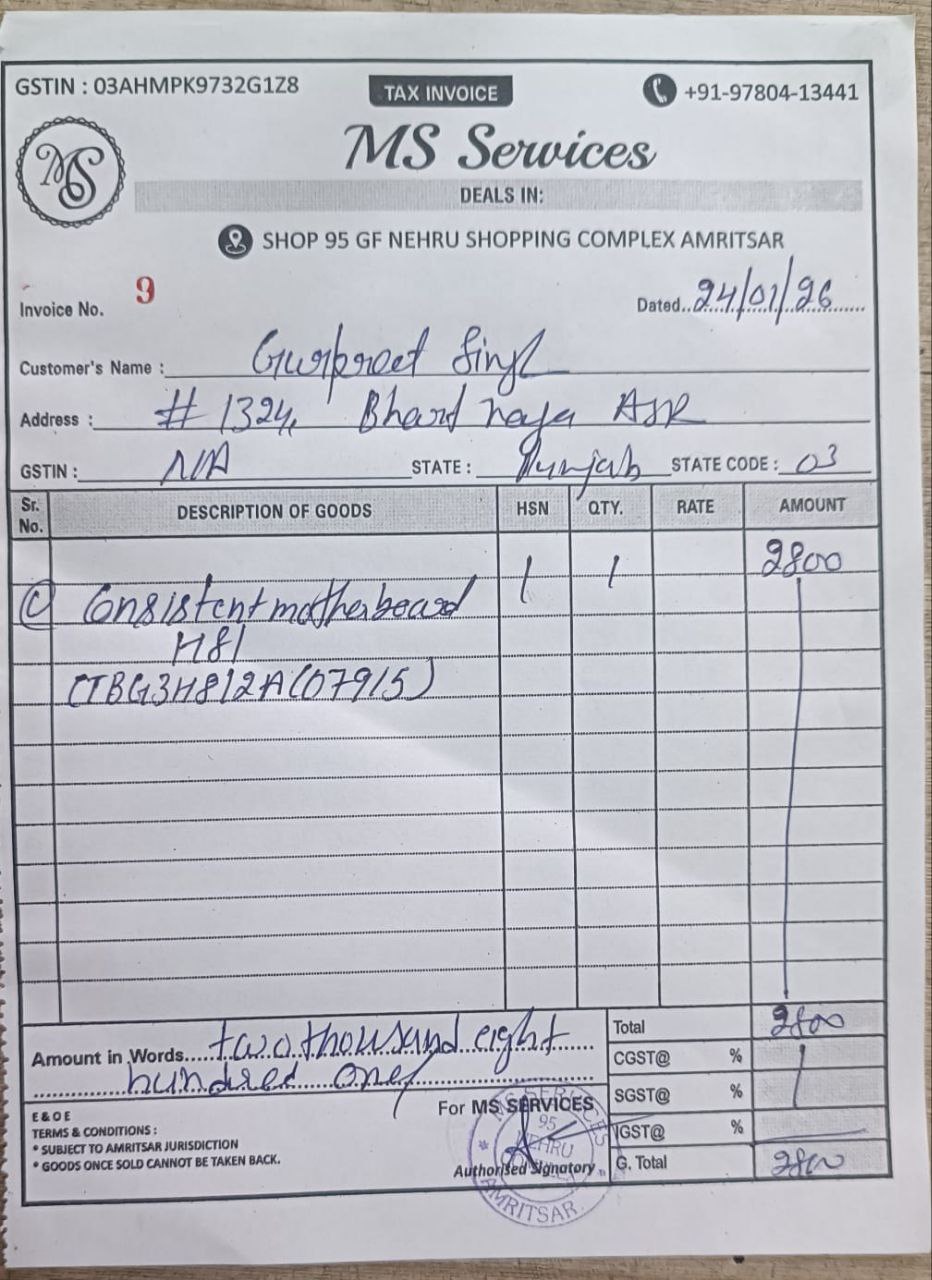 GSTIN : 03AHMPK9732G1Z8 TAX INVOICE +91-97804-13441
MS
MS Services
DEALS IN:
SHOP 95 GF NEHRU SHOPPING COMPLEX AMRITSAR
Invoice No. 9 Dated..24/01/26
Customer's Name : Gurpreet Singh
Address : # 1324, ASR
GSTIN : N/A STATE : Punjab STATE CODE : 03
Sr. No. DESCRIPTION OF GOODS HSN QTY. RATE AMOUNT
1 2800
Consistent motherboard
H81
CTBG3H812A(07915)
Total 2800
Amount in Words two thousand eight
hundred
CGST@ %
SGST@ %
IGST@ %
G. Total 2800
E & O E
TERMS & CONDITIONS :
* SUBJECT TO AMRITSAR JURISDICTION
* GOODS ONCE SOLD CANNOT BE TAKEN BACK.
For MS SERVICES
Authorised Signatory
MS SERVICES
95
NEHRU
AMRITSAR